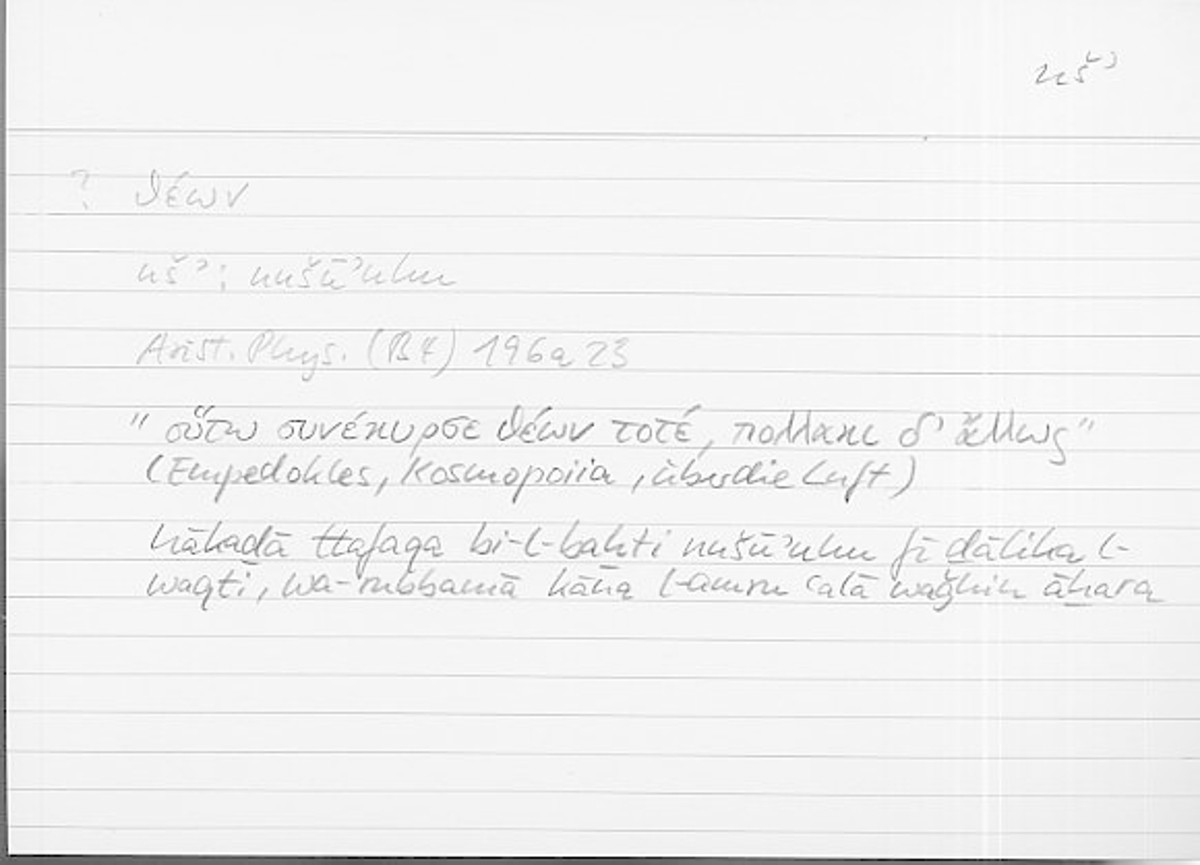 nšʾ
? θέων
nšʾ: nušūʾuhu
Arist. Phys. (B4) 196a23
"οὕτω συνέκυρσε θέων τοτέ, πολλακι δ' ἄλλως"
(Empedokles, Kosmopoiia, über die Luft)
hākaḏā ttafaqa bi-l-baḫti nušūʾuhu fī ḏālika l-
waqti, wa-rubbamā kāna l-amru ʿalā waǧhin āḫara